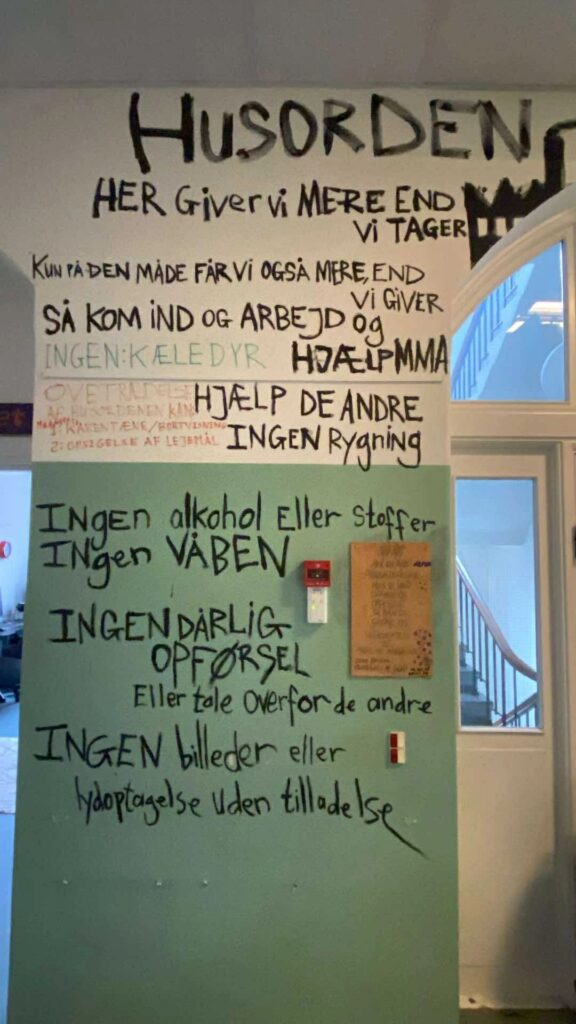 HUSORDEN
HER GIVER VI MERE END
VI TAGER
KUN PÅ DEN MÅDE FÅR VI OGSÅ MERE END
VI GIVER
SÅ KOM IND OG ARBEJD OG
INGEN: KÆLEDYR HJÆLP MMA
OVETRÆDELSE HJÆLP DE ANDRE
AF HUSORDENEN KAN
KARENTÆNE/BORTVISNING INGEN RYGNING
2: OPSIGELSE AF LEJEMÅL
INGEN alkohol Eller Stoffer
INGEN VÅBEN
INGEN DÅRLIG
OPFØRSEL
Eller tale overfor de andre
INGEN billeder eller
lydoptagelse uden tilladelse